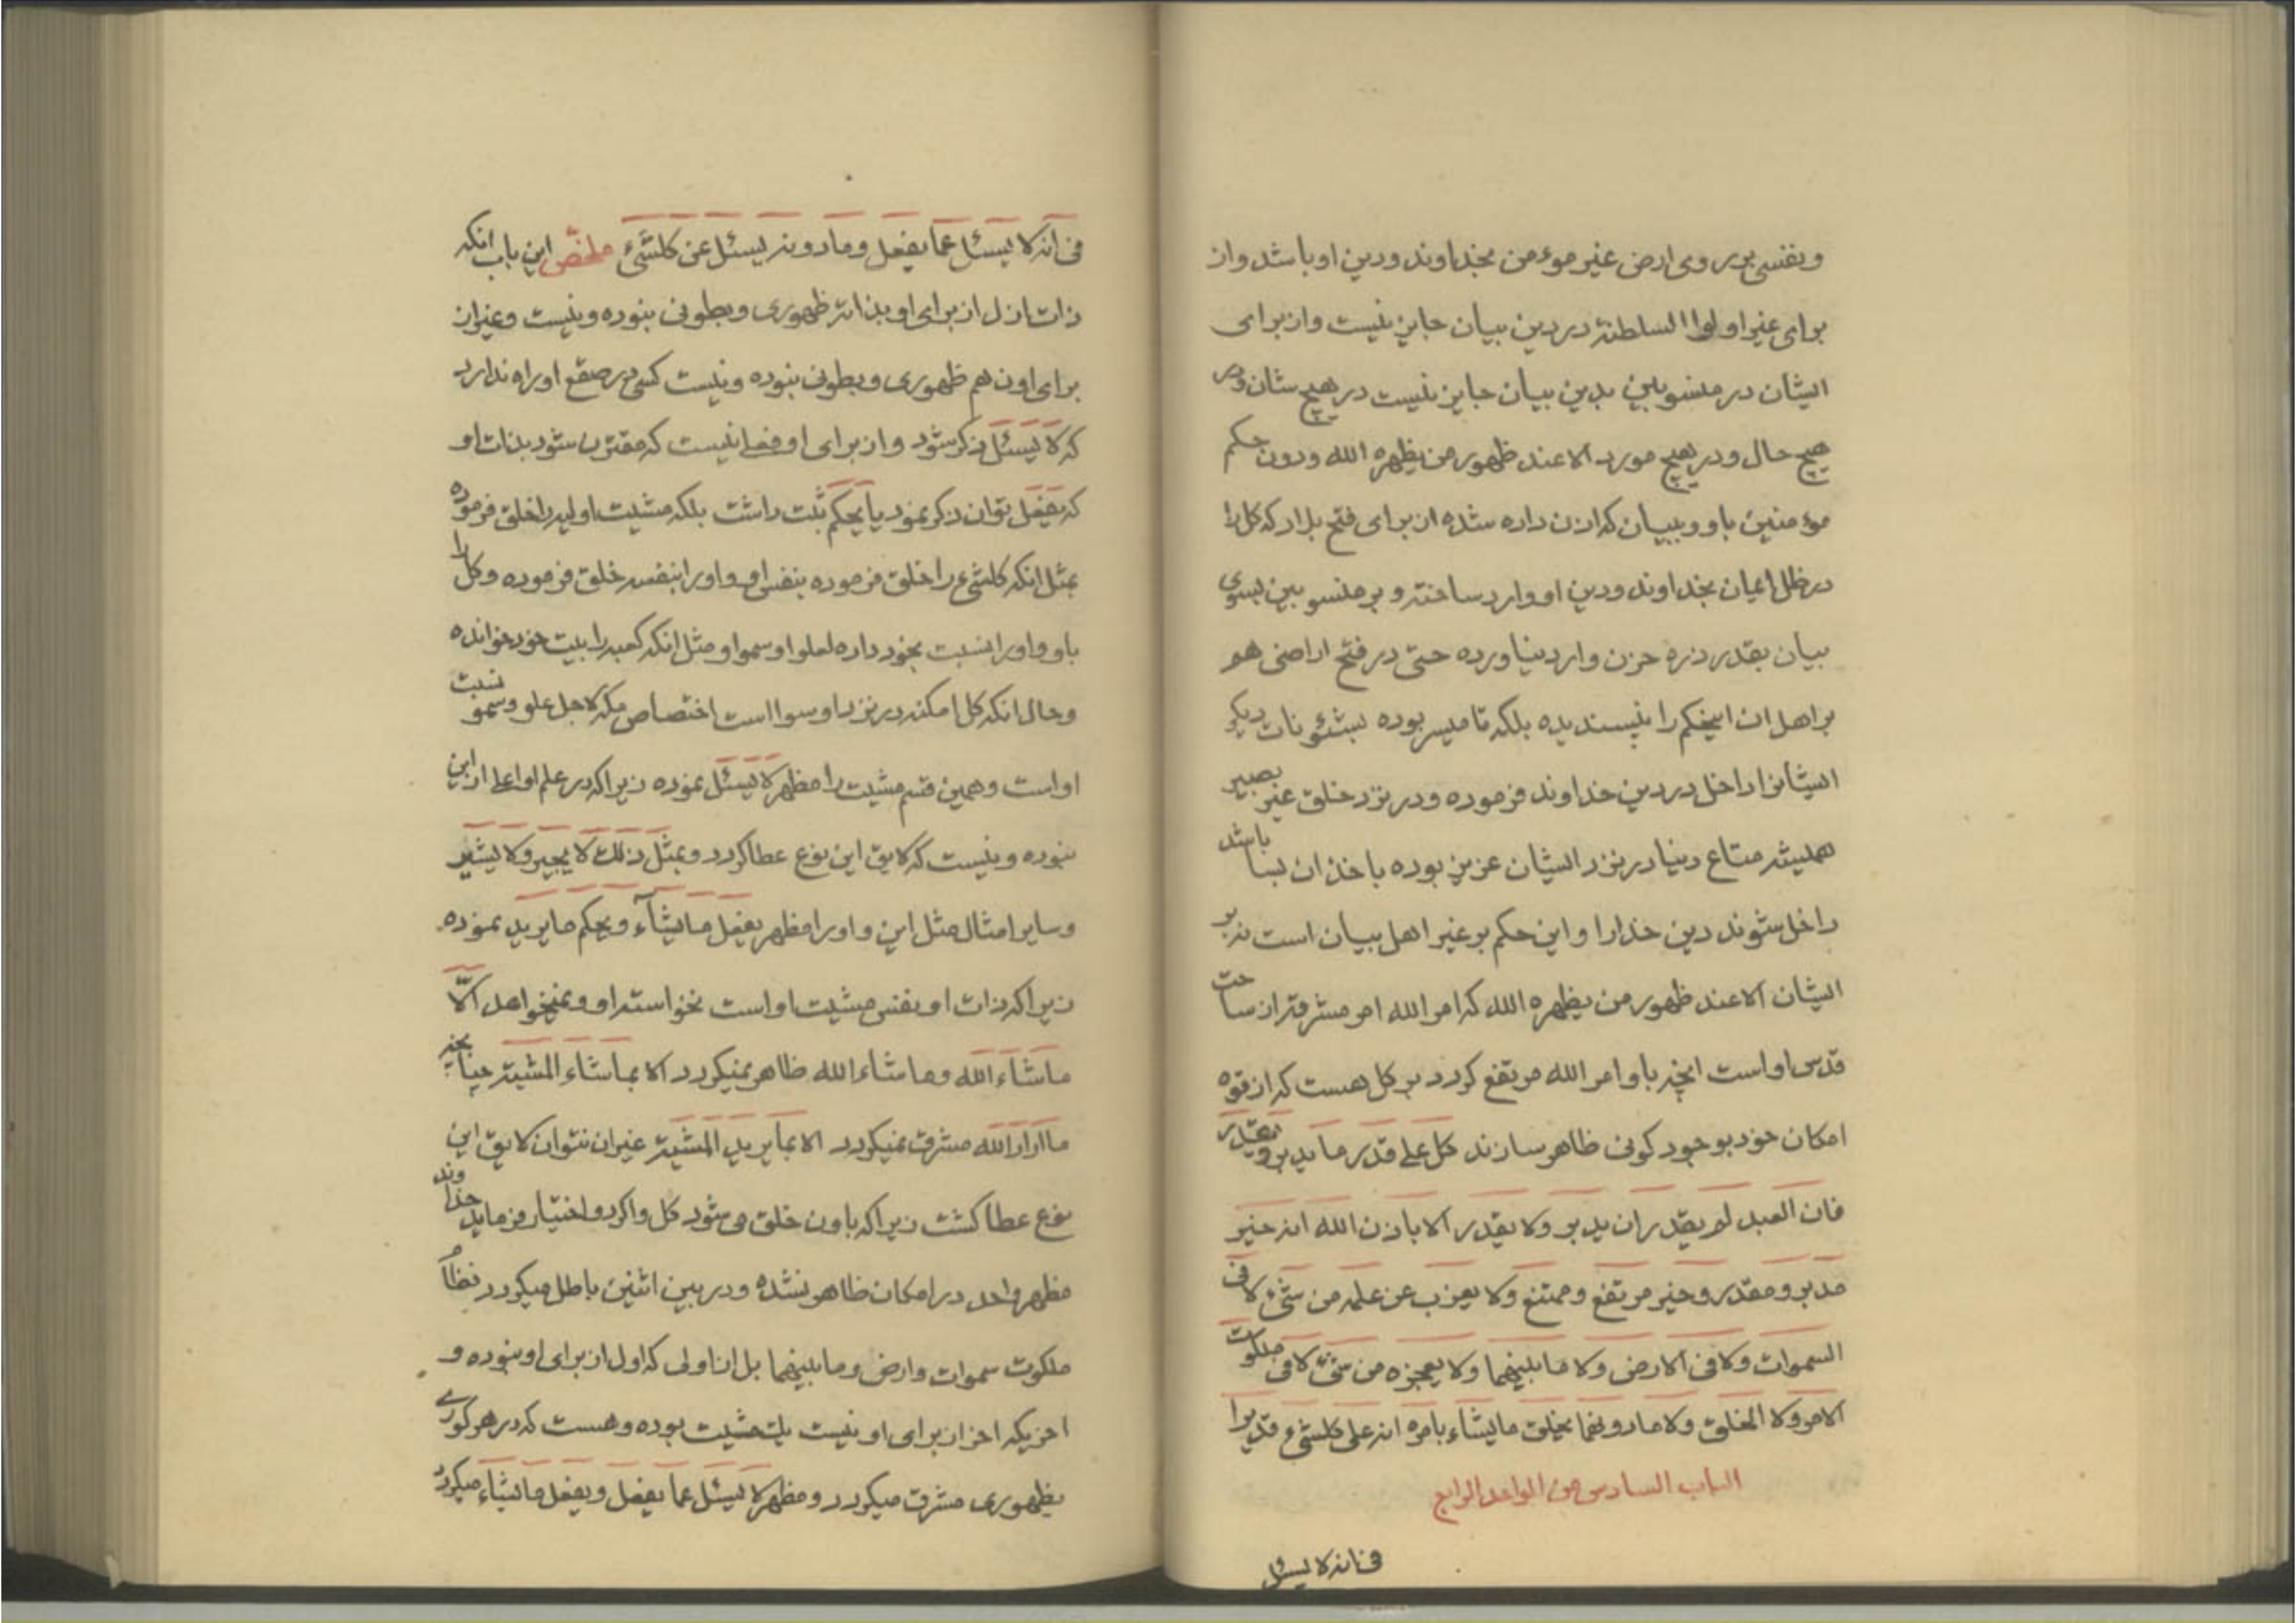 ونفسی بر روی ارض غیر مؤمن بخداوند ودین او باشد واز
برای غیر اولوا السلطنة در دین بیان جایز نیست واز برای
ایشان در منسوبین بدین بیان جایز نیست در هیچ شان ودر
هیچ حال ودر هیچ مورد الا عند ظهور من یظهره الله ودون حکم
مؤمنین باو وببیان که اذن داده شده از برای فتح بلاد که کل را
در ظل ایمان بخداوند ودین او وارد ساخته و بر منسوبین بسوی
بیان بقدر ذره حزن وارد نیاورده حتی در فتح اراضی هم
بر اهل ان اینحکم را نپسندیده بلکه تا میسر بوده بشئونات دیگر
ایشانرا داخل در دین خداوند فرموده ودر نزد خلق غیر بصیر
همیشه متاع دنیا در نزد ایشان عزیز بوده باخذ ان بسا باشد
داخل شوند دین خدارا واین حکم بر غیر اهل بیان است نه بر
ایشان الا عند ظهور من یظهره الله که امر الله امر مشرقتر از ساحت
قدس او است انچه باو امر الله مرتفع گردد بر کل هست که از قوه
امکان خود بوجود کونی ظاهر سازند کل علی قدر ما یدبر ویقدر
فان العبد لم یقدر ان یدبر ولا یقدر الا باذن الله انه خیر
مدبر ومقدر وخیر مرتفع وممتنع ولا یعزب عن علمه من شیء لا فی
السموات ولا فی الارض ولا ما بینهما ولا یعجزه من شیء لا فی ملکوت
الامر ولا الخلق ولا ما دونهما یخلق ما یشاء بامره انه علی کلشیء قدیرا
الباب السادس من الواحد الرابع
فی انه لا یسئل
فی انه لا یسئل عما یفعل وما دونه یسئل عن کلشیء ملخص این باب انکه
ذات ازل از برای او بذاته ظهوری وبطونی نبوده ونیست وغیر از
برای اون هم ظهوری وبطونی نبوده ونیست کسی در صقع او راه ندارد
که لا یسئل ذکر شود واز برای او فعلی نیست که مقترن شود بذات او
که یفعل توان ذکر نمود یا یحکم ثبت داشت بلکه مشیت اولیه را خلق فرموده
بمثل انکه کلشیء را خلق فرموده بنفس او واورا بنفسه خلق فرموده وکل را
باو واورا نسبت بخود داده لعلو او وسمو او مثل انکه کعبه را بیت خود خوانده
وحال انکه کل امکنه در نزد او سوا است اختصاص مکه لاجل علو وسمو نسبت
او است وهمین قسم مشیت را مظهر لا یسئل نموده زیرا که در علم او اعلی از این
نبوده ونیست که لایق این نوع عطا گردد وبمثل ذلک لا یجیر ولا یشیر
وسایر امثال مثل این واورا مظهر یفعل ما یشآء ویحکم ما یرید نموده
زیرا که ذات او بنفس مشیت او است نخواسته او ونمیخواهد الّا
ماشآء الله وما شاء الله ظاهر نمیگردد الا بماشاء المشیة چنانچه
ما اراد الله مشرق نمیگردد الا بما یرید المشیة غیر ان نتوان لایق این
نوع عطا گشت زیرا که باون خلق می شود کل واگر دو اختیار فرماید خداوند
مظهر واحد در امکان ظاهر نشده ودر بین اثنین باطل میگردد نظام
ملکوت سموات وارض وما بینهما بل ان اولی که اول از برای او نبوده و
اخریکه اخر از برای او نیست یک مشیت بوده وهست که در هر کوری
بظهوری مشرق میگردد ومظهر لا یسئل عما یفعل ویفعل ما یشاء میگردد